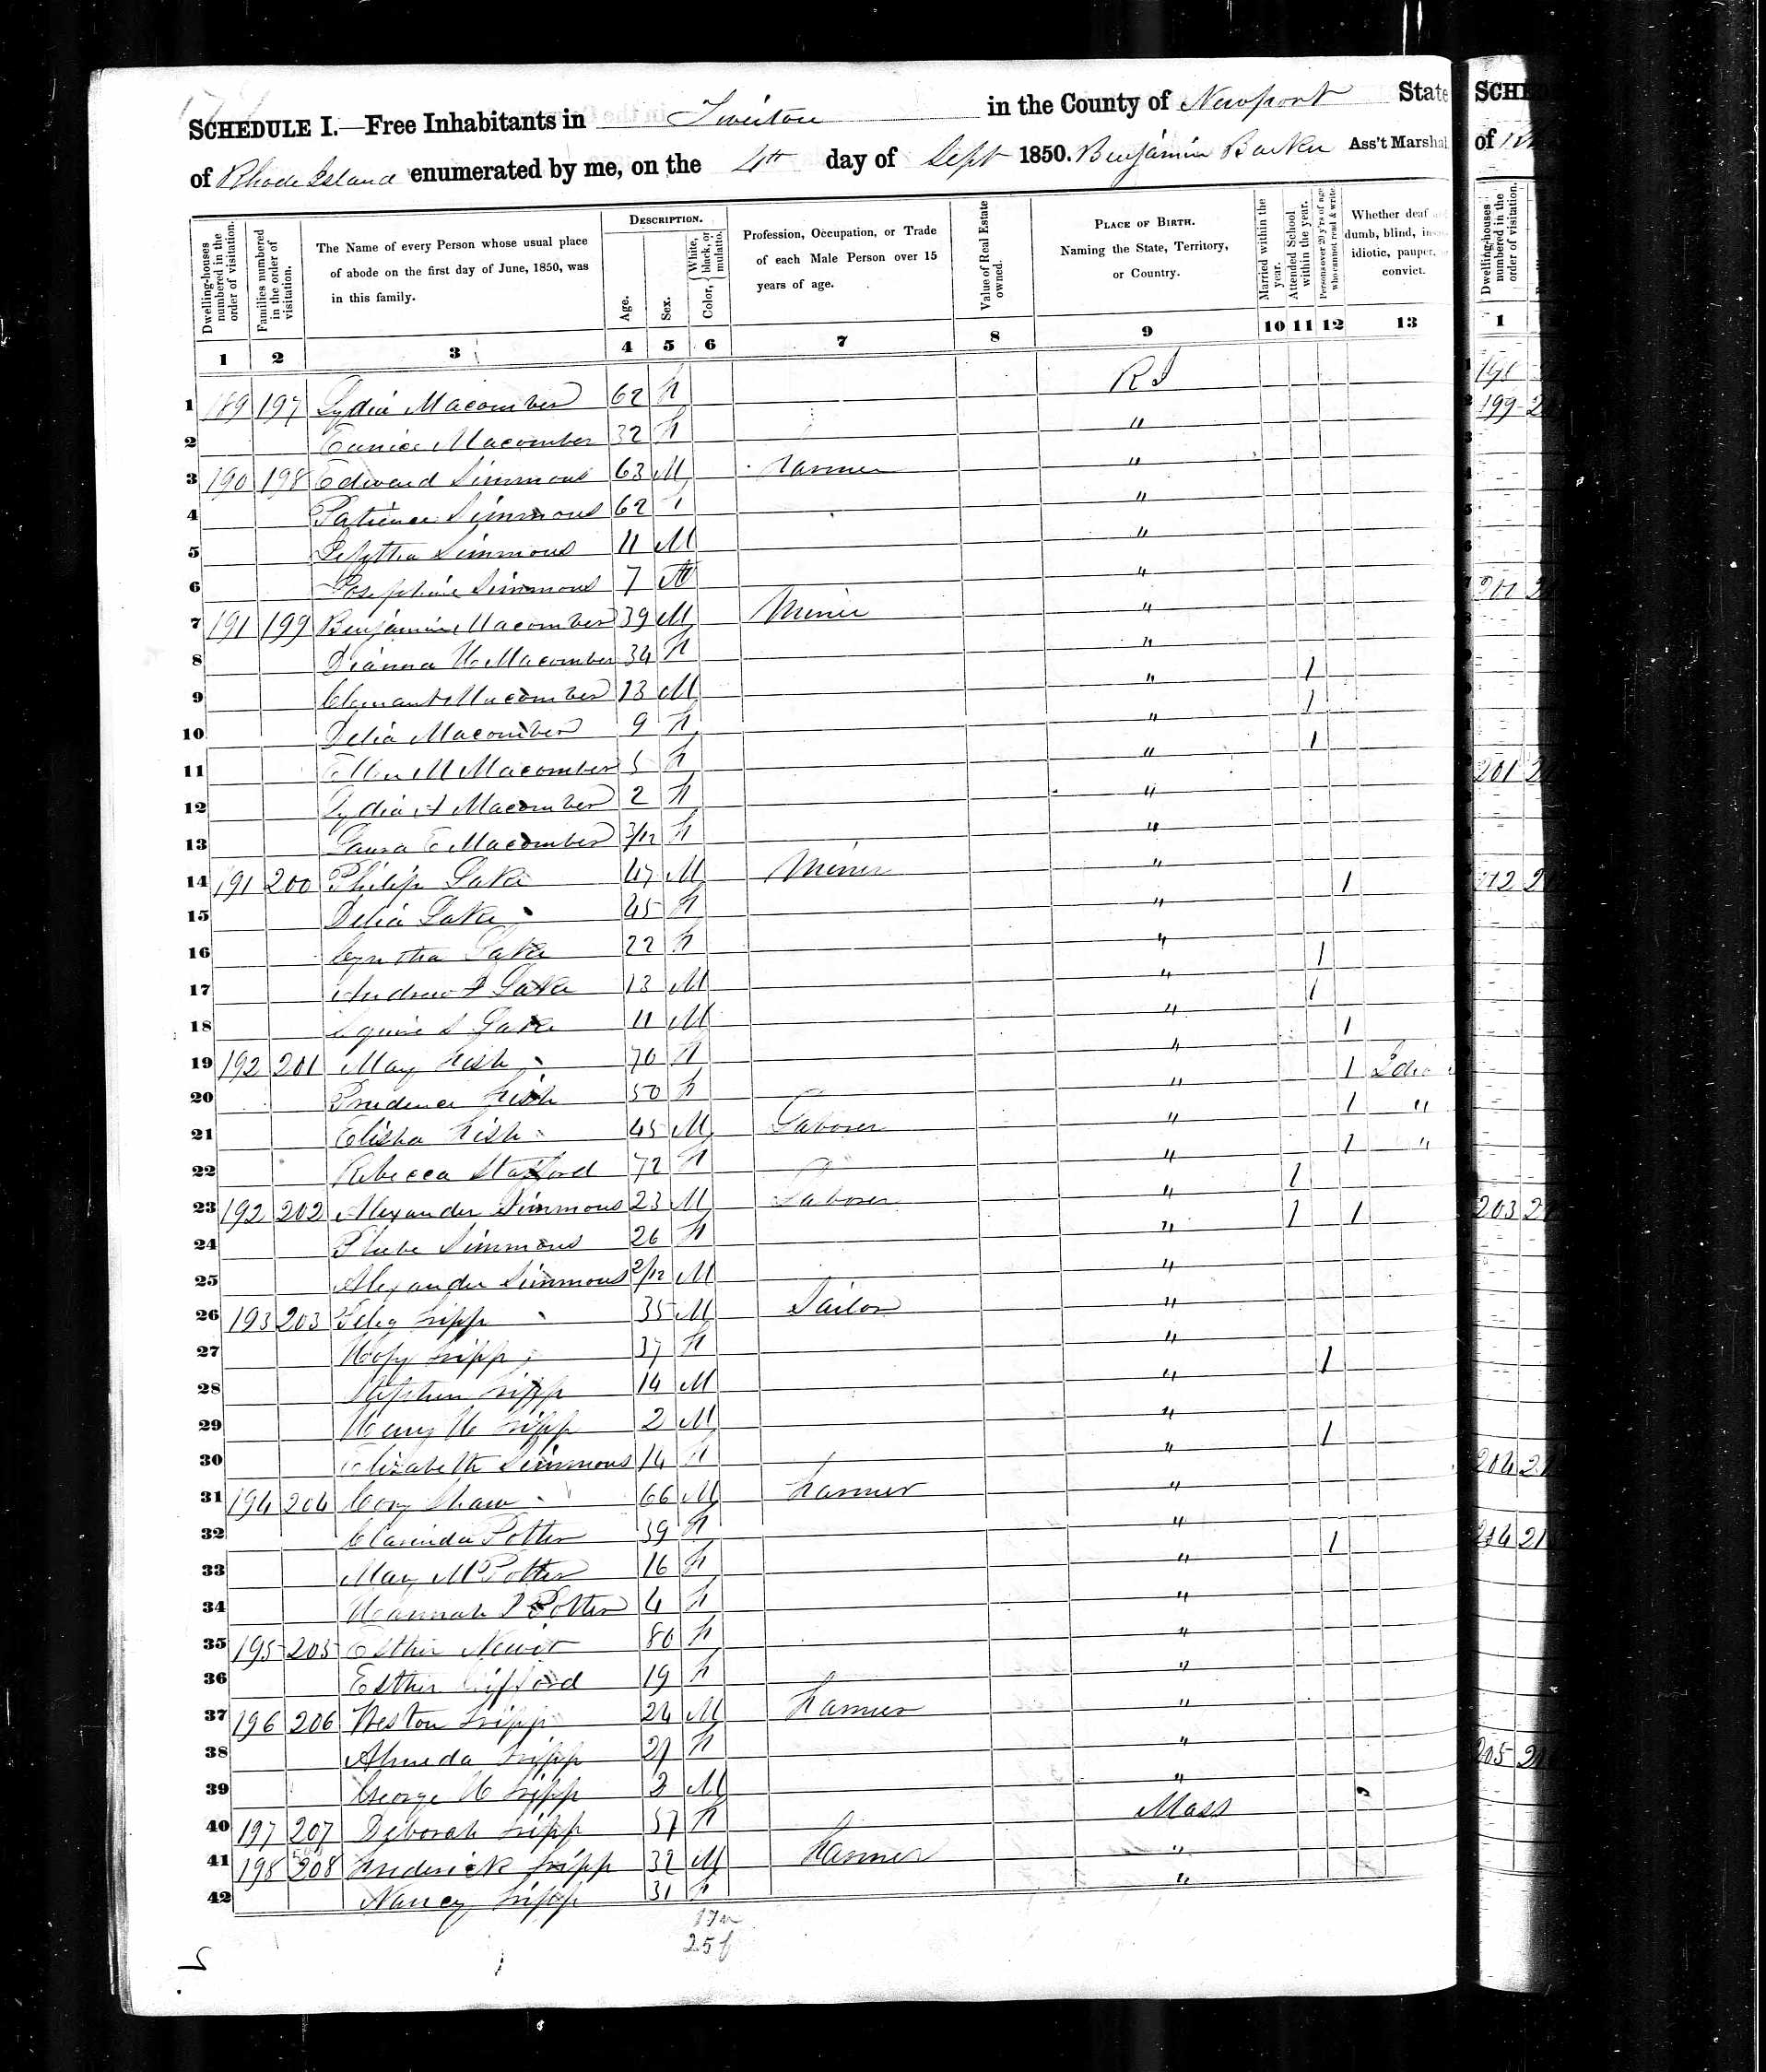 SCHEDULE I.—Free Inhabitants in Tiverton in the County of Newport State
of Rhode Island enumerated by me, on the 4th day of Sept 1850. Benjamin Barker Ass't Marshal
Dwelling-houses numbered in the order of visitation.
Families numbered in the order of visitation.
The Name of every Person whose usual place of abode on the first day of June, 1850, was in this family.
DESCRIPTION.
Age.
Sex.
Color, White, black, or mulatto.
Profession, Occupation, or Trade of each Male Person over 15 years of age.
Value of Real Estate owned.
PLACE OF BIRTH. Naming the State, Territory, or Country.
Married within the year.
Attended School within the year.
Persons over 20 y'rs of age who cannot read & write.
Whether deaf dumb, blind, idiotic, pauper, convict.
1 2 3 4 5 6 7 8 9 10 11 12 13
1 189 197 Lydia Macomber 62 F R I
2 Eunice Macomber 32 F "
3 190 198 Edward Simmons 63 M Farmer "
4 Patience Simmons 62 F "
5 Simmons 11 M "
6 Josephine Simmons 7 "
7 191 199 Benjamin Macomber 39 M Miner "
8 Dianna H Macomber 34 F "
9 Clemant Macomber 13 M " 1
10 Delia Macomber 9 F " 1
11 Ellen M Macomber 5 F " 1
12 Lydia A Macomber 2 F "
13 Laura E Macomber 3/12 F "
14 191 200 Philip Lake 47 M Miner "
15 Delia Lake 45 F " 1
16 Cynthia Lake 22 F "
17 Andrew Lake 13 M " 1
18 Squire S Lake 11 M " 1
19 192 201 Mary Fish 70 F " 1
20 Prudence Fish 50 F " 1
21 Elisha Fish 45 M Laborer " 1 "
22 Rebecca Stafford 72 F " 1 "
23 192 202 Alexander Simmons 23 M Laborer " 1
24 Phebe Simmons 26 F " 1 1
25 Alexander Simmons 2/12 M "
26 193 203 Peleg Tripp 35 M Sailor "
27 Tripp 37 F "
28 Stephen Tripp 14 M " 1
29 Henry H Tripp 2 M "
30 Elizabeth Simmons 14 F " 1
31 194 204 Cory Shaw 66 M Farmer "
32 Clarinda Potter 39 F "
33 Mary M Potter 16 F " 1
34 Hannah Potter 4 F "
35 195 205 Esther 80 F "
36 Esther Gifford 19 F "
37 196 206 Weston Tripp 24 M Farmer "
38 Almeda Tripp 27 F "
39 George H Tripp 3 M "
40 197 207 Deborah Tripp 57 F Mass
41 198 208 Frederick Tripp 32 M Farmer "
42 Nancy Tripp 31 F "
17 m
25 f